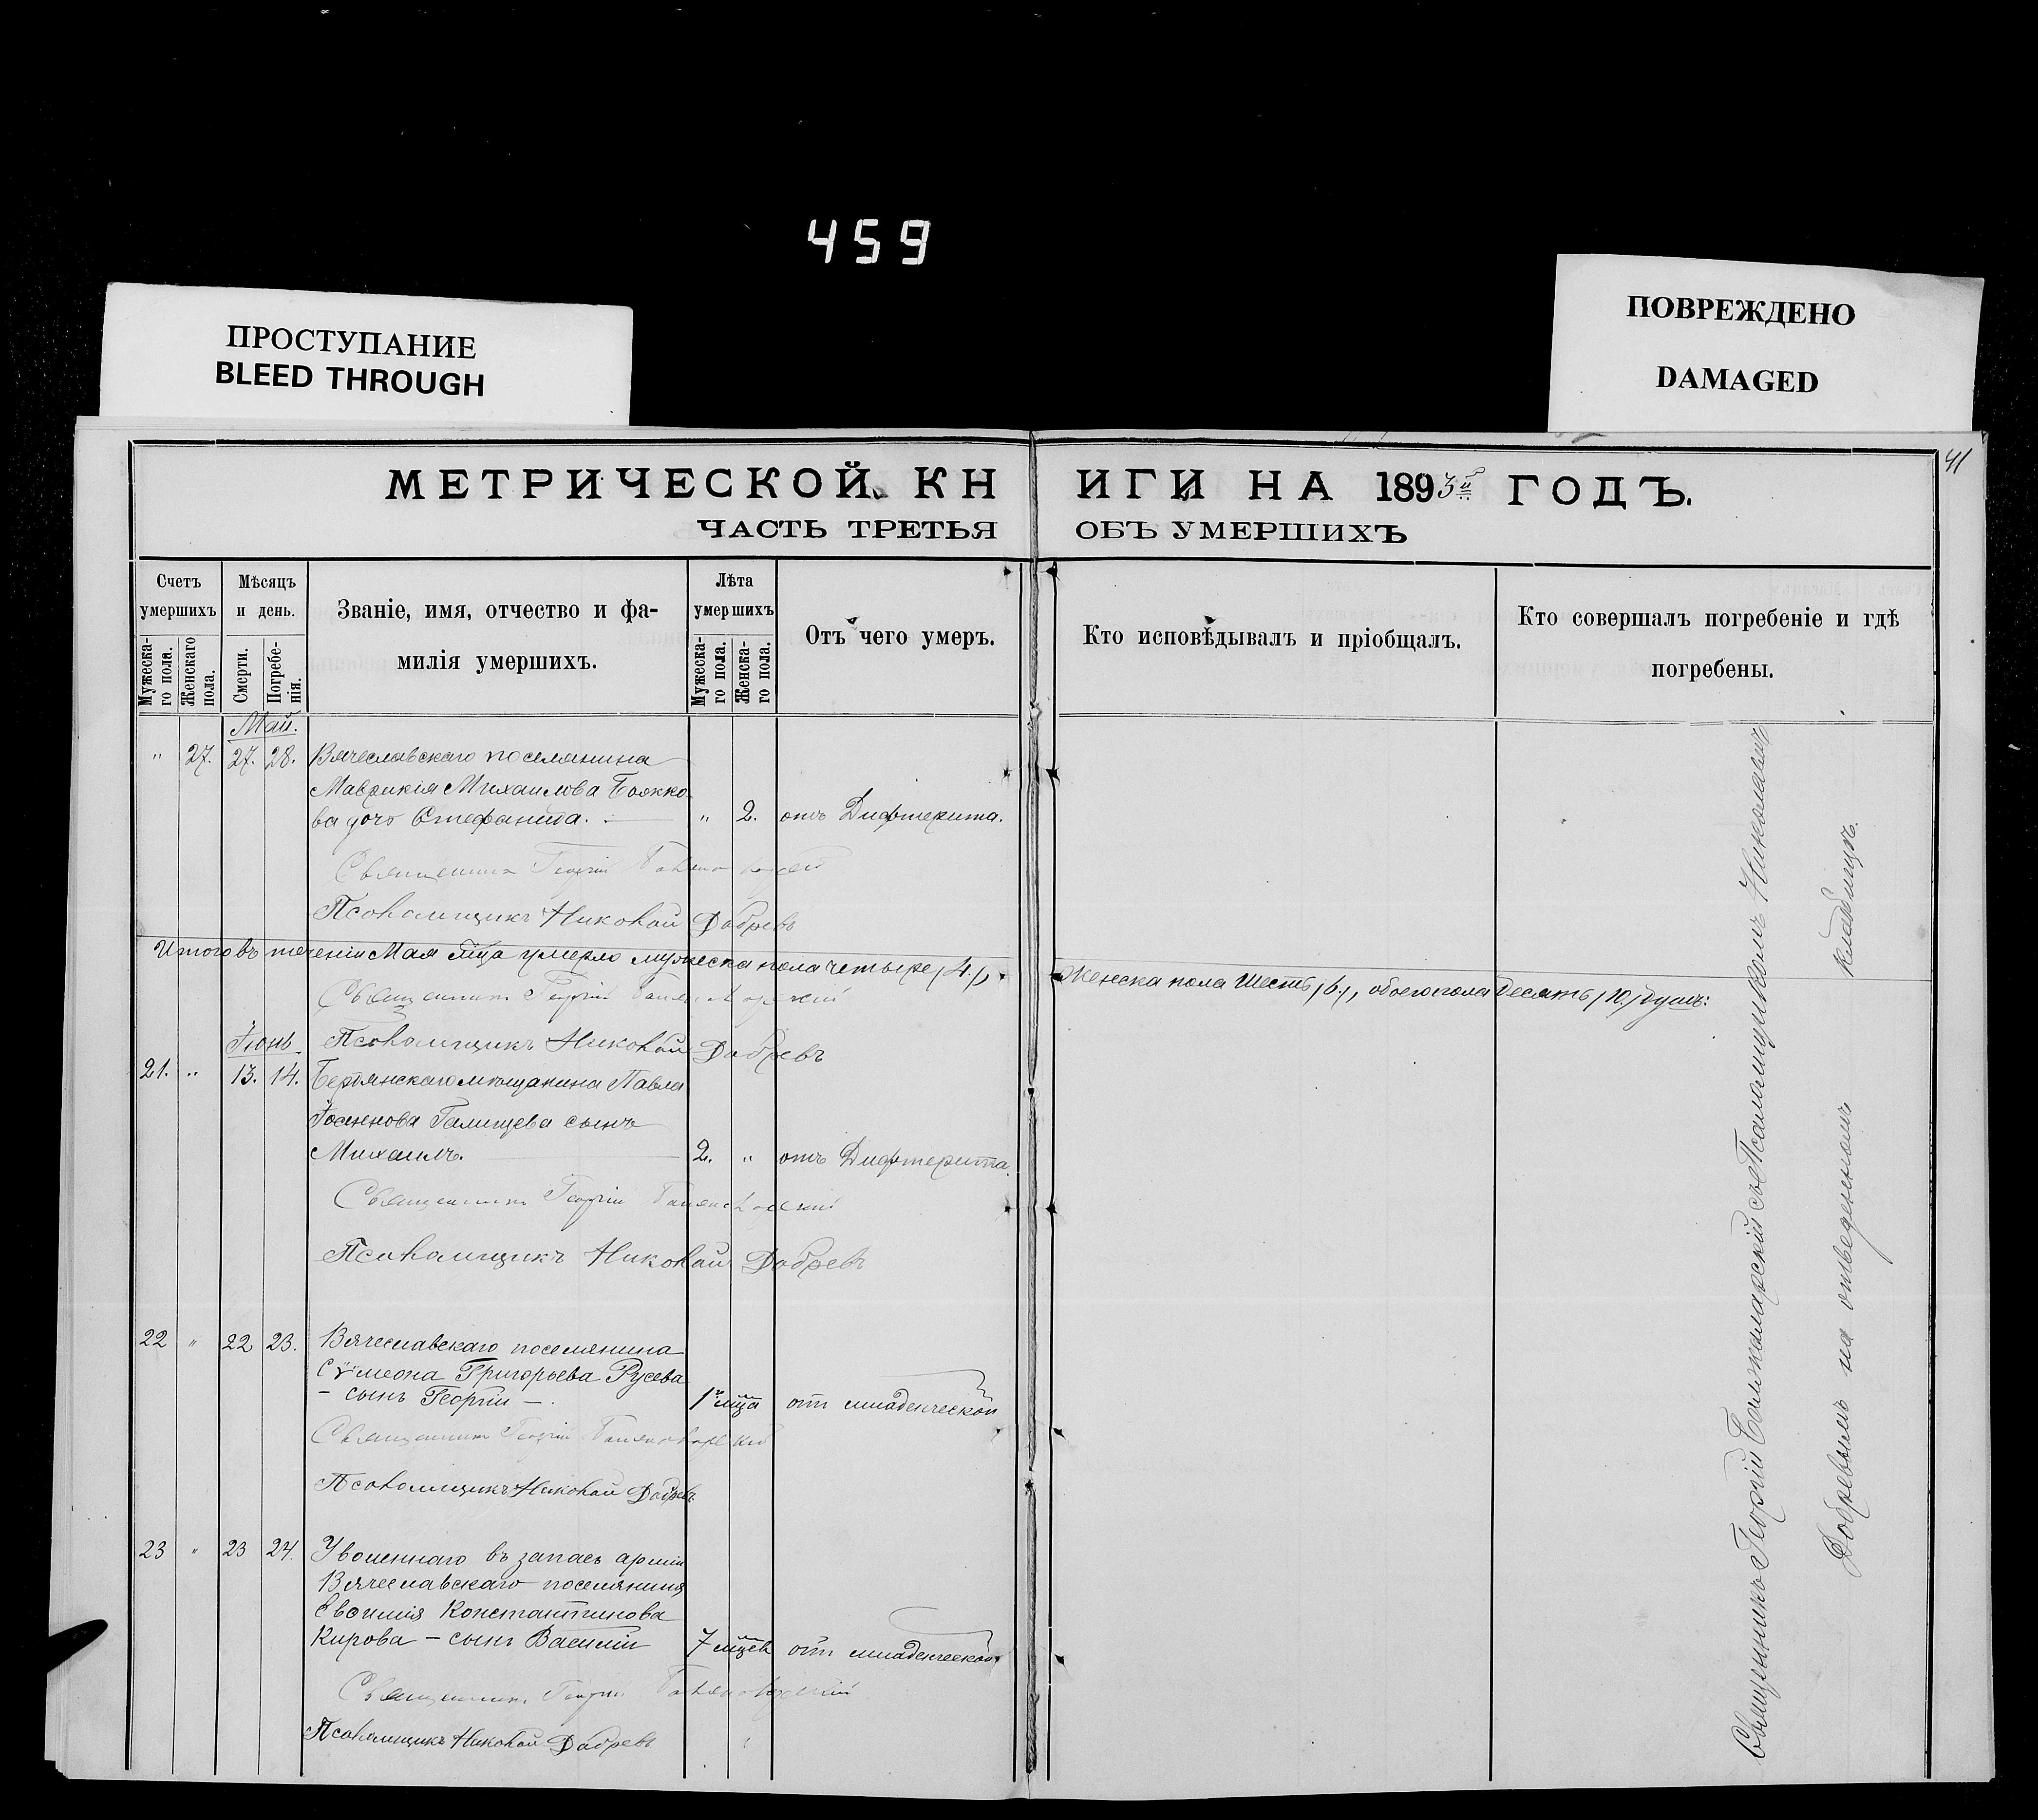 459
ПРОСТУПАНИЕ
BLEED THROUGH
ПОВРЕЖДЕНО
DAMAGED
41
МЕТРИЧЕСКОЙ КНИГИ НА 1893й ГОДЪ.
ЧАСТЬ ТРЕТЬЯ ОБЪ УМЕРШИХЪ
Счетъ умершихъ
Мужеска-
го пола.
Женскаго
пола.
Мѣсяцъ
и день.
Смерти.
Погребе-
нія.
Званіе, имя, отчество и фа-
милія умершихъ.
Лѣта
умершихъ
Мужеска-
го пола.
Женска-
го пола.
Отъ чего умеръ.
Кто исповѣдывалъ и пріобщалъ.
Кто совершалъ погребеніе и гдѣ
погребены.
Май.
" 27. 27. 28. Вячеславскаго поселянина
Маврикія Михаилова
ва дочь Стефанида. " 2. отъ Дифтерита.
Священникъ Георгій
Псаломщикъ Николай Добревъ
Итого въ теченіи Мая мѣца умерло мужеска пола четыре /4./, женска пола Шесть /6./, обоего пола Десять /10./ душъ:
Священникъ Георгій
Псаломщикъ Николай Добревъ
Іюнь
21. " 13. 14. Бердянскаго мѣщанина Павла
Галищева сынъ
Михаилъ. 2. " отъ Дифтерита.
Священникъ Георгій
Псаломщикъ Николай Добревъ
22 " 22 23. Вячеславскаго поселянина
Сѵмеона Григорьева Русева
– сынъ Георгій –. 1го мца отъ младенческой
Священникъ Георгій
Псаломщикъ Николай Добревъ
23 " 23 24. Уволеннаго въ запасъ арміи
Вячеславскаго поселянина
Евѳимія Константинова
Кирова – сынъ Василій 7 мцев отъ младенческой
Священникъ Георгій
Псаломщикъ Николай Добревъ
Священникъ Георгій съ Псаломщикомъ Николаемъ
Добревымъ на отведенномъ кладбищѣ.